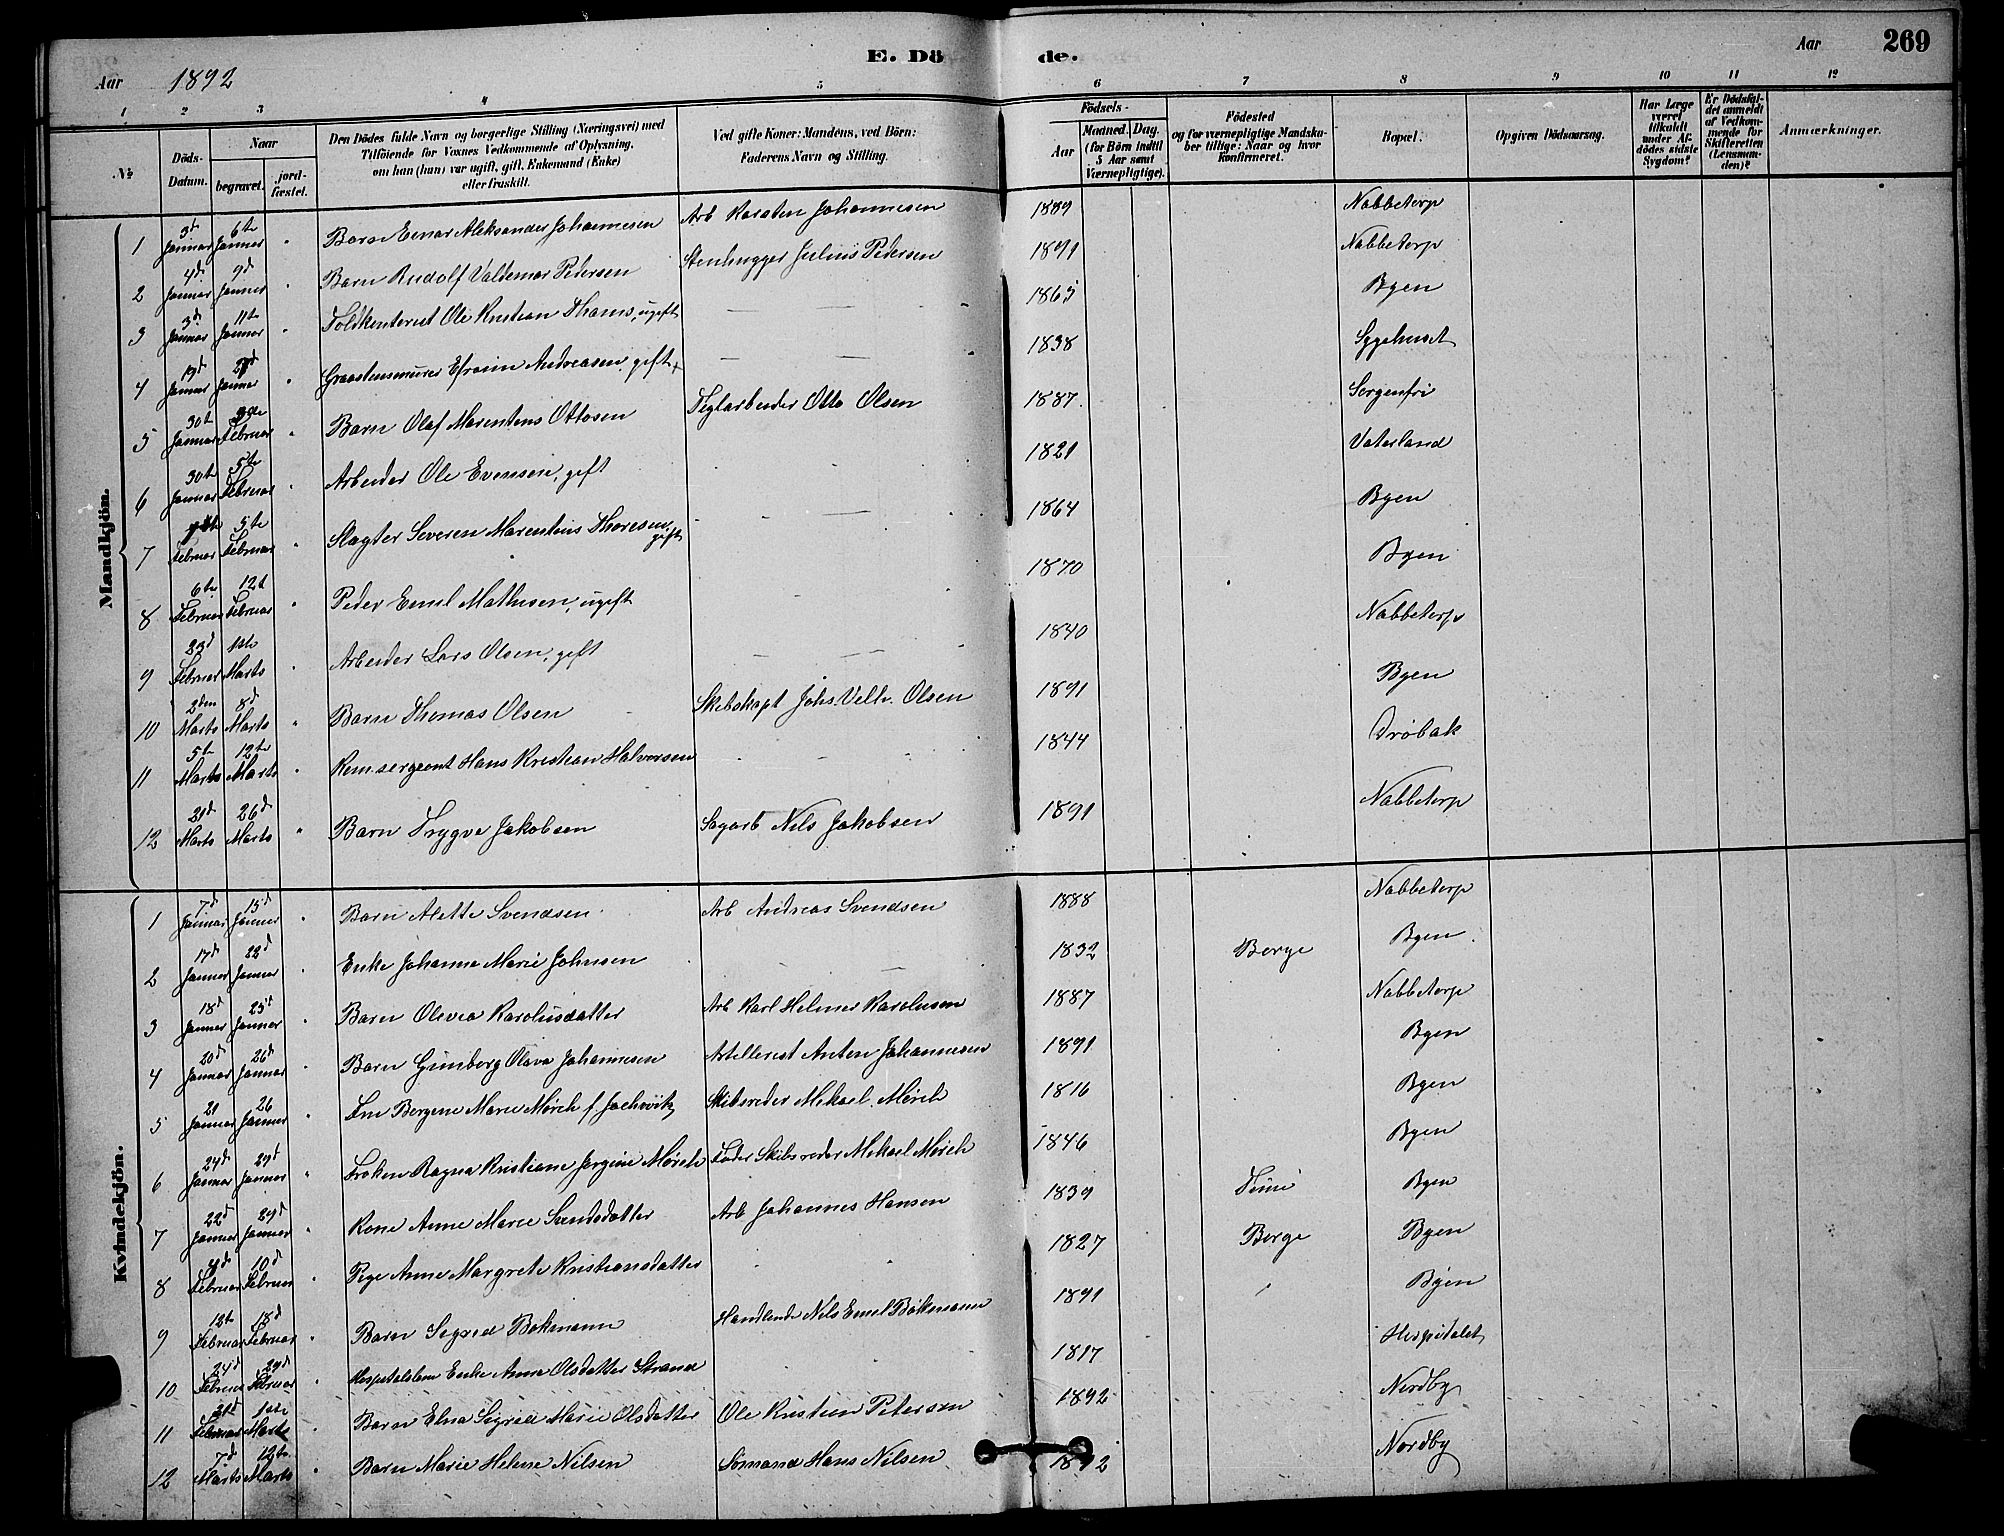 E. Döde.
Aar 1892
Aar 269
1 2 3 4 5 6 7 8 9 10 11 12
No.
Döds-Datum.
Naar
begravet.
jord-fæstet.
Den Dödes fulde Navn og borgerlige Stilling (Næringsvei) med Tilföiende for Voxnes Vedkommende af Oplysning, om han (hun) var ugift, gift, Enkemand (Enke) eller fraskilt.
Ved gifte Koner: Mandens, ved Börn: Faderens Navn og Stilling.
Födsels-
Aar
Maaned. Dag.
(for Börn indtil 5 Aar samt Værnepligtige).
Födested
og for værnepligtige Mandskaber tillige: Naar og hvor konfirmeret.
Bopæl.
Opgiven Dödsaarsag.
Har Læge været tilkaldt under Afdödes sidste Sygdom?
Er Dödsfaldet anmeldt af Vedkommende for Skifteretten (Lensmanden)?
Anmærkninger.
Mandkjön.
1 3d Januar 6te Januar " Barn Einar Aleksander Johannesen Arb Karsten Johannesen 1889 Nabbetorp
2 4d Januar 9d Januar " Barn Rudolf Valdemar Pedersen Stenhugger Julius Pedersen 1891 Nabbetorp
3 3d Januar 11te Januar " Toldkontorist Ole Kristian Thams, ugift — — 1865 Byen
4 19d Januar Januar " Graastensmurer Efraim Andreasen, gift — — 1838 Sygehuset
5 30t Januar Februar " Barn Olaf Marentius Ottosen Teglarbeider Otto Olsen 1887 Sorgenfri
6 30te Januar 5te Februar " Arbeider Ole Evensen, gift 1821 Vaterland
7 Februar 5te Februar " Slagter Severin Marentius Thoresen gift - — — 1864 Byen
8 6te Februar 12t Februar " Peder Emil Mathisen, ugift 1870 Byen
9 23d Februar 1ste Marts " Arbeider Lars Olsen, gift — — 1840 Nabbetorp
10 2den Marts 8d Marts " Barn Thomas Olsen Skibskapt Johs. Vilh. Olsen 1891 Byen
11 5te Marts 12te Marts " Kom.sergeant Hans Kristian Halvorsen 1844 Drøbak
12 21d Marts 26d Marts " Barn Trygve Jakobsen Sagarb Nils Jakobsen 1891 Nabbetorp
Kvindekjön.
1 7d Januar 15d Januar " Barn Alette Svendsen Arb Andreas Svendsen 1888 Nabbetorp
2 17d Januar 22d Januar " Enke Johanne Marie Johnsen — 1832 Borge Byen
3 18d Januar 25d Januar " Barn Olevia Karolusdatter Arb Karl Helmer Karolusen 1887 Nabbetorp
4 20d Januar 26d Januar " Barn Gunborg Olava Johannesen Artillerist Anton Johannesen 1891 Byen
5 21 Januar 26 Januar " Fru Bergine Marie Mørch f. Skibsreder Mikael Mørch 1816 Byen
6 24d Januar 29d Januar " Frøken Ragna Kristiane Jørgine Mørch Fader Skibsreder Mikael Mørch 1846 Byen
7 22d Januar 29d Januar " Kone Anne Marie Arb Johannes Hansen 1839 Byen
8 Februar 10d Februar " Pige Anne Margrete Kristiansdatter 1827 Borge Byen
9 12te Februar 18d Februar " Barn Sigrid Bøkmann Handlende Nils Emil Bøkmann 1891 Byen
10 24d Februar 29d Februar " Hospitalslem Enke Anne Olsdatter Strand 1817 Hospitalet
11 Februar 1ste Marts " Barn Elna Sigrid Marie Olsdatter Ole Kristian Petersen 1892 Nordby
12 7d Marts 12te Marts " Barn Marie Helene Nilsen Sømand Hans Nilsen 1892 Nordby